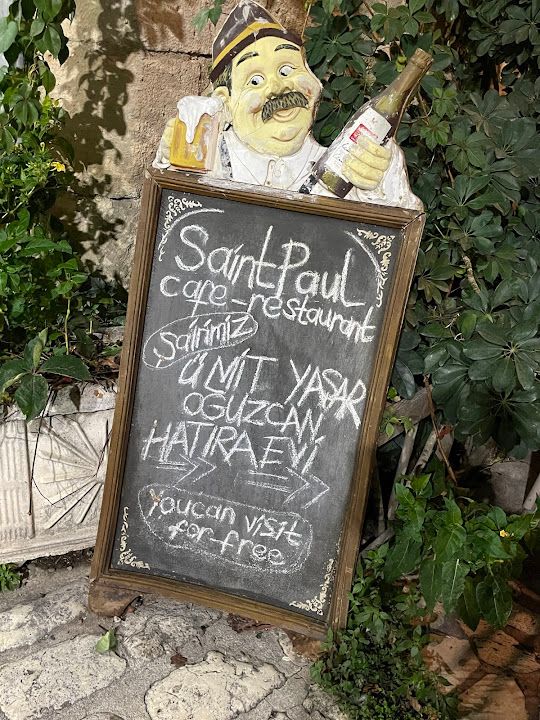 Saint Paul
cafe-restaurant
sairimiz
ÜMİT YAŞAR
OGUZCAN
HATIRA EVİ
You can visit
for-free